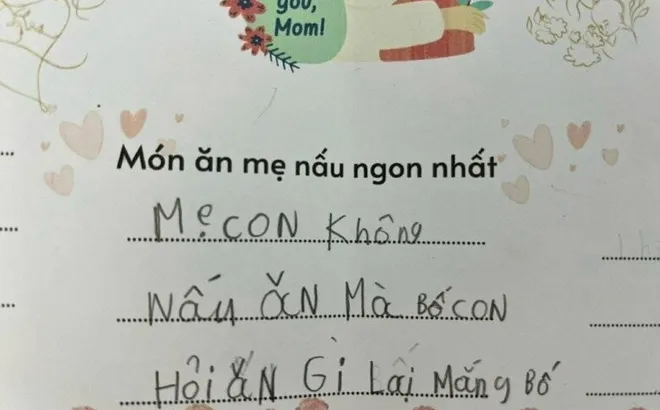 you,
Mom!
Món ăn mẹ nấu ngon nhất
Mẹ CON Không
NẤU ĂN Mà BỐ CON
HỎi ĂN Gì Lại Mắng BỐ